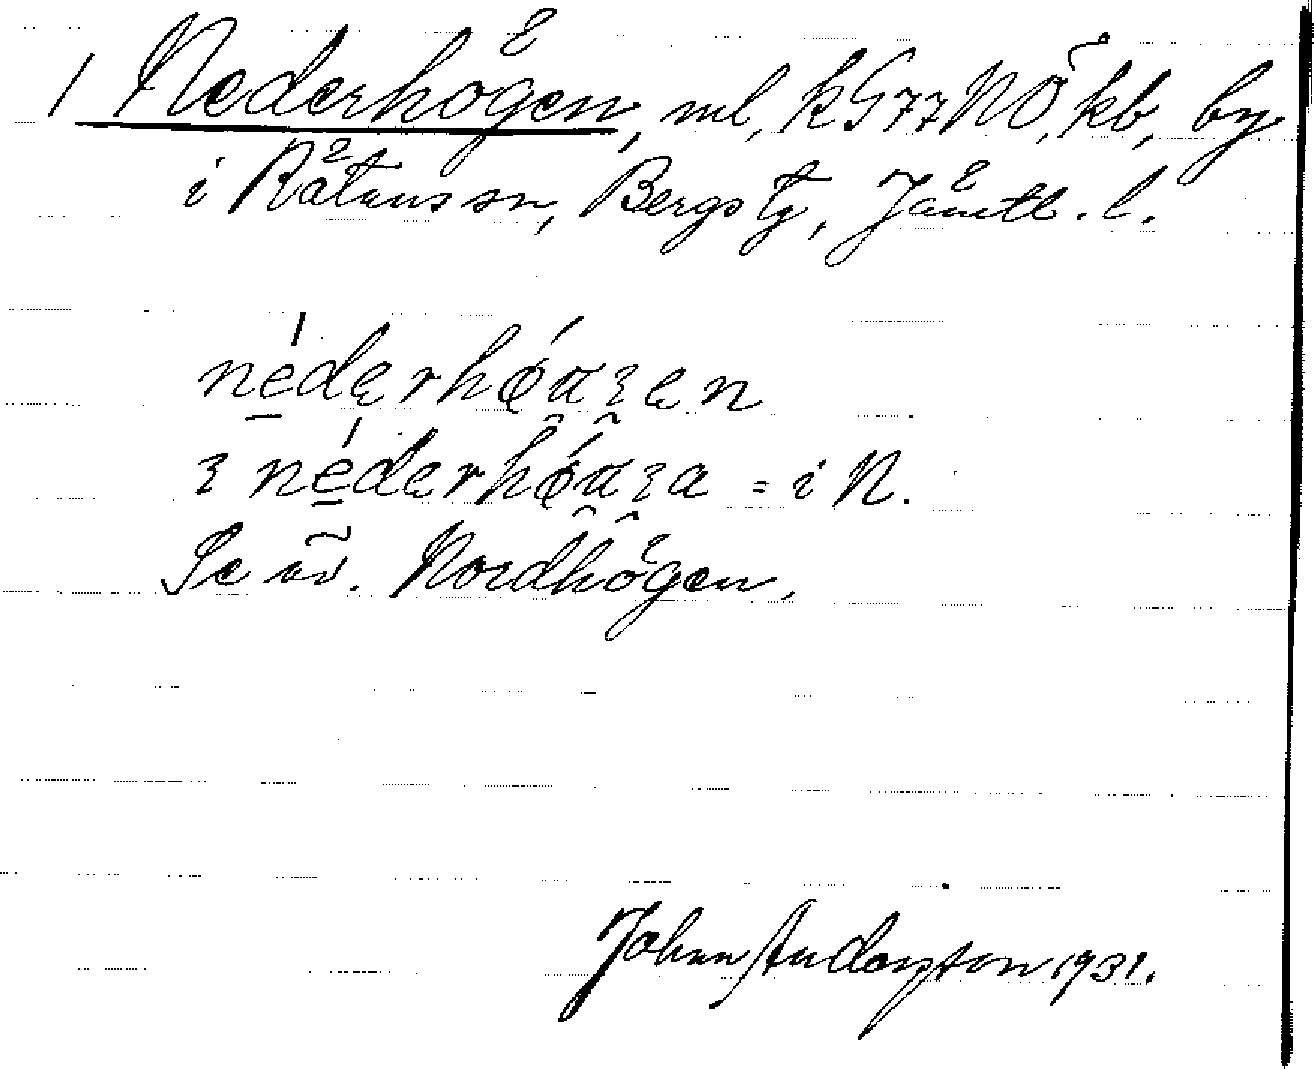 1 Nederhögen, ml, kG77NÖ, kb, by
i Rätans sn, Bergs tg, Jämtl. l.
néderhǿaʒen
ʒ néderhǿaʒa = i N.
Se äv. Nordhögen.
Johan Anderzton 1931.